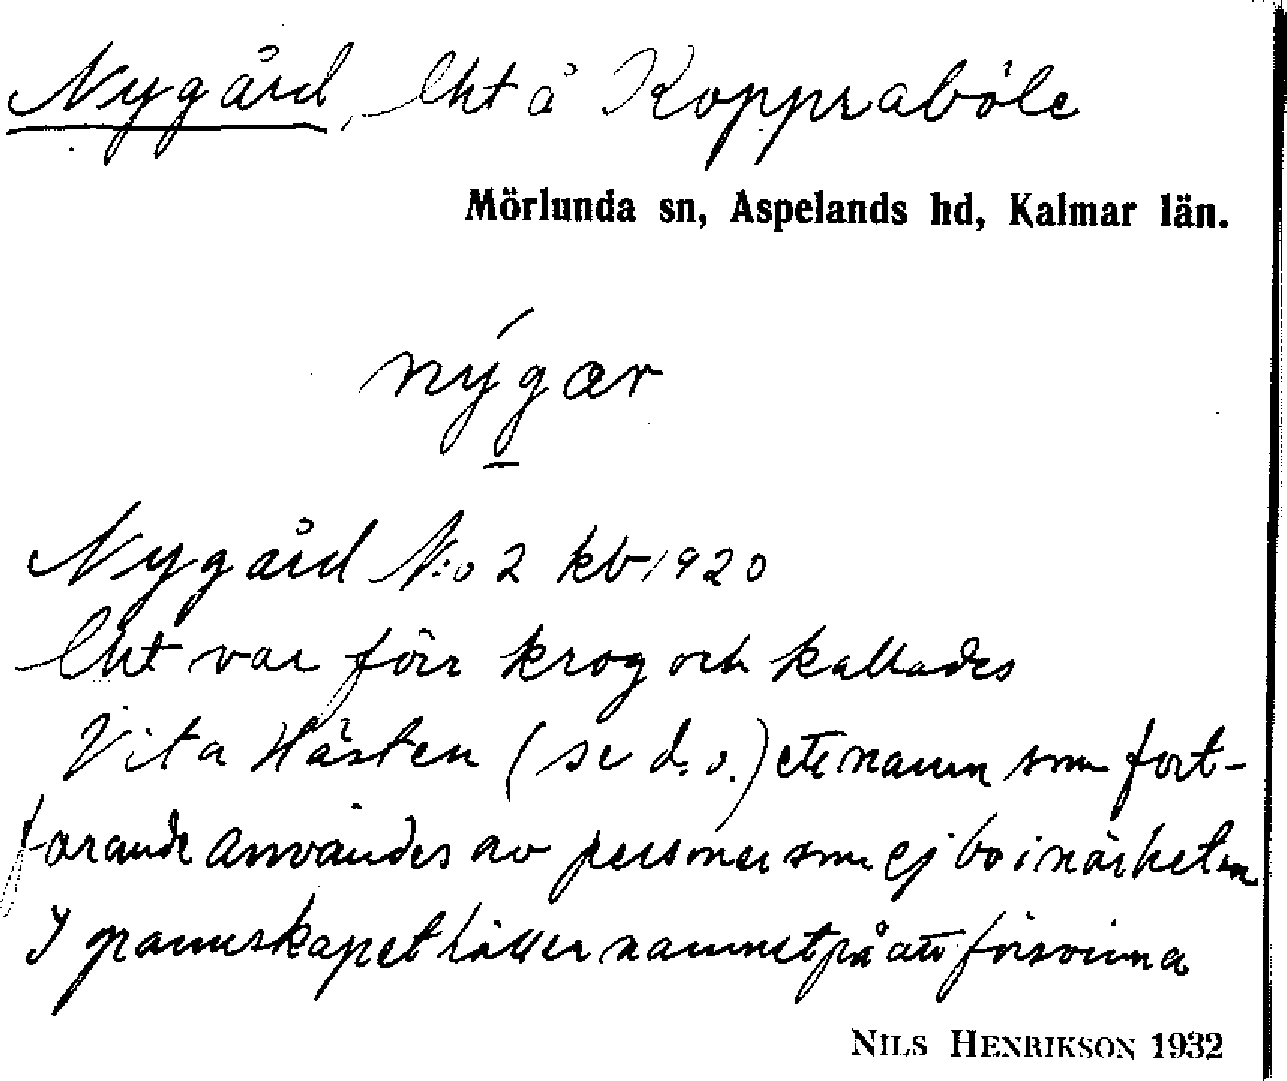 Nygård, lht å Koppraböle
Mörlunda sn, Aspelands hd, Kalmar län.
nýgar
Nygård N:o 2 kb 1920
lht var förr krog och kallades
Vita Hästen (se d. o.) ett namn som fort-
farande användes av personer som ej bo i närheten
I grannskapet håller namnet på att försvinna
NILS HENRIKSON 1932